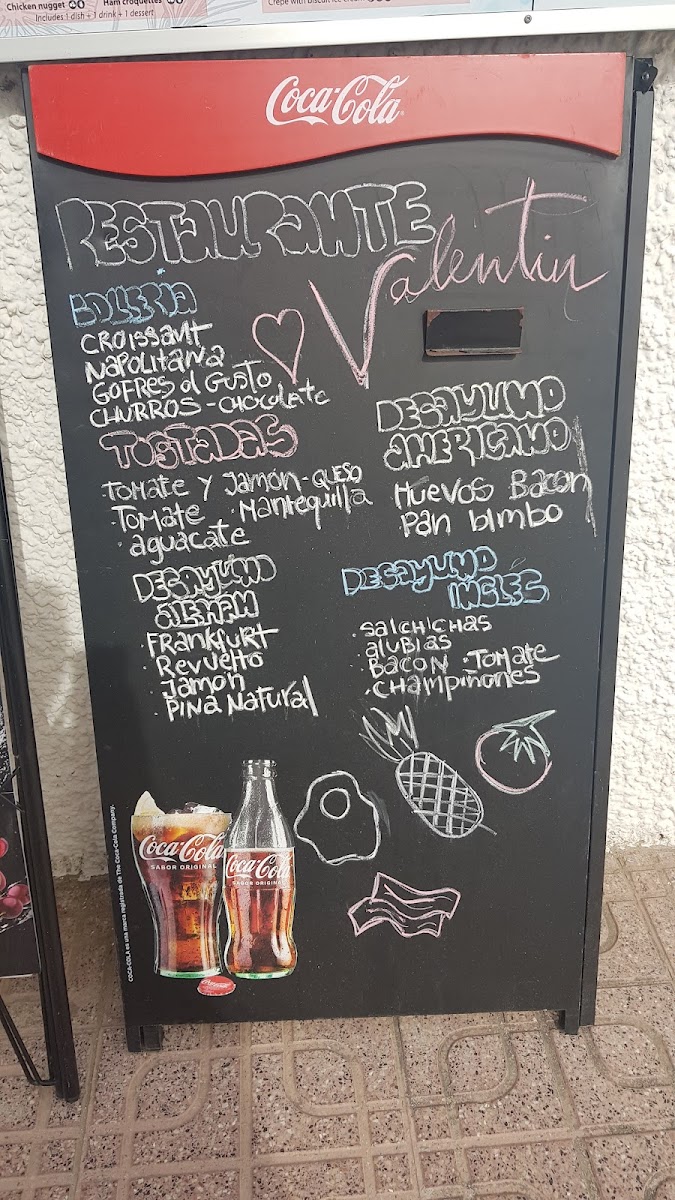 Chicken nugget
Ham croquettes
Includes 1 dish + 1 drink + 1 dessert
Crepe with biscuit ice cream
Coca-Cola
RESTAURANTE
Valentin
BOLLERIA
CROISSANT
NAPOLITANA
GOFRES al GUSTO
CHURROS - CHOCOLATE
TOSTADAS
TOMATE Y JAMÓN - QUESO
· TOMATE · Mantequilla
· aguacate
DESAYUNO
AMERICANO
HUEVOS Bacon
Pan bimbo
DESAYUNO
ALEMAN
· FRANKFURT
· Revuelto
· Jamon
· PIÑA Natural
DESAYUNO
INGLES
· SALCHICHAS
· alubias
· BACON · TOMATE
· CHAMPIÑONES
Coca-Cola
SABOR ORIGINAL
Coca-Cola
SABOR ORIGINAL
COCA-COLA es una marca registrada de The Coca-Cola Company.